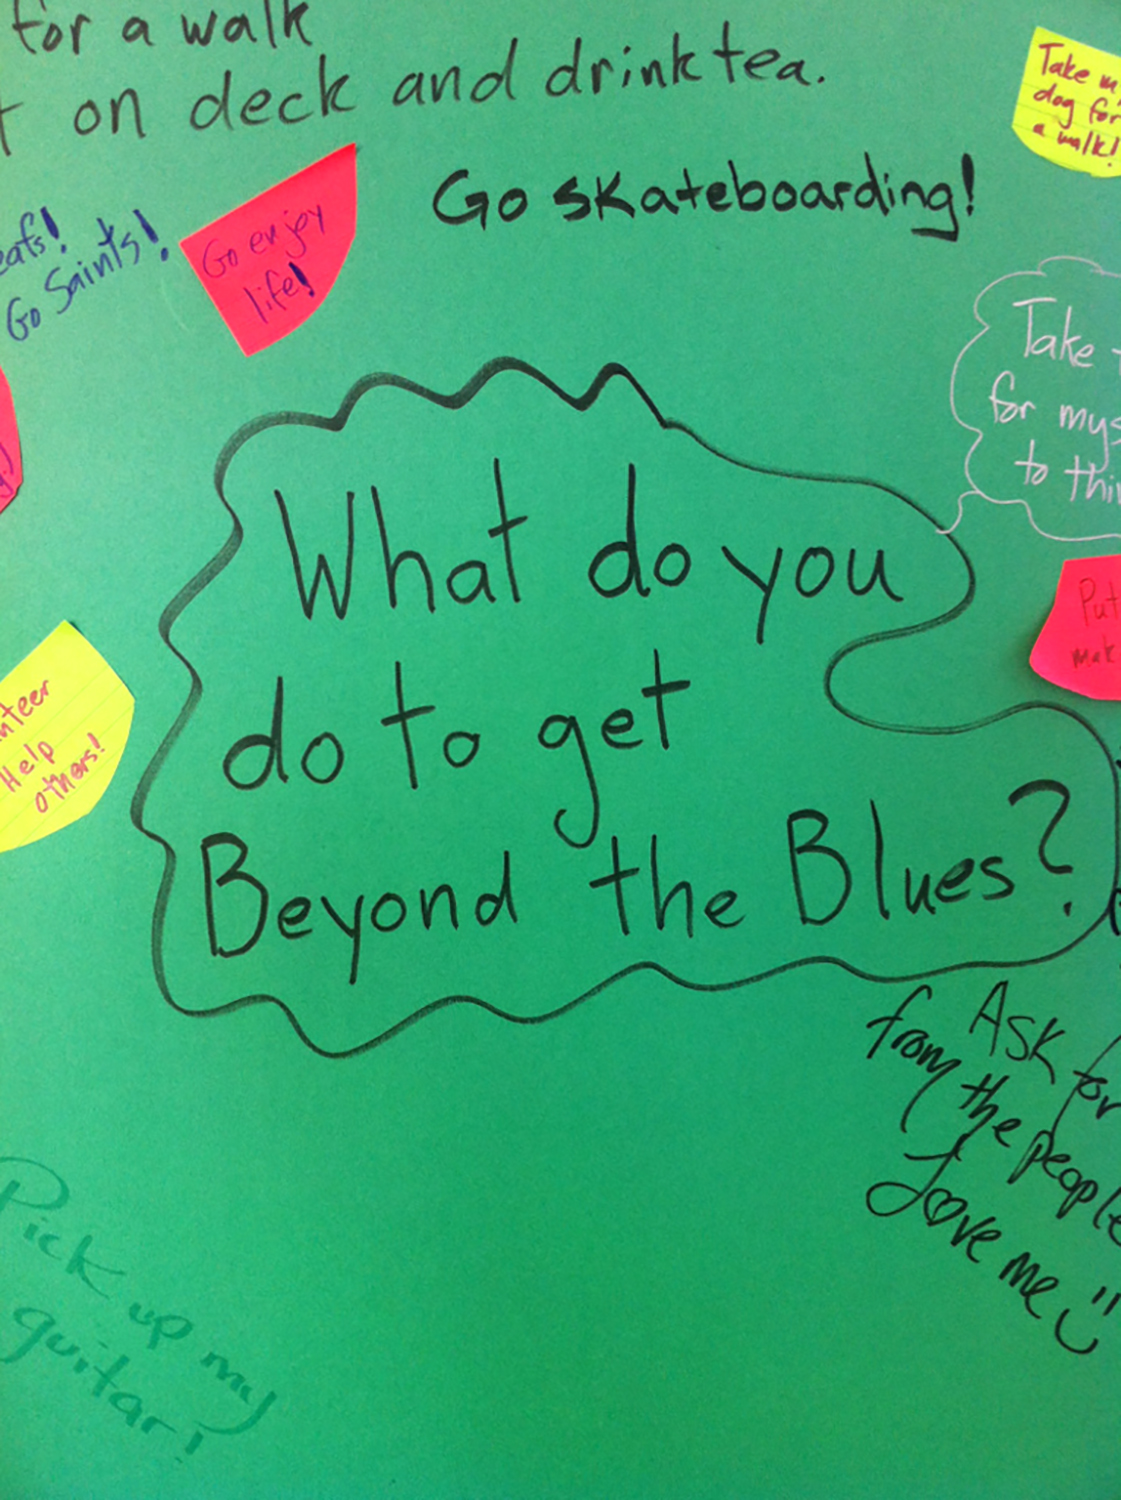 for a walk
on deck and drink tea.
Take
dog for
a walk!
Go skateboarding!
Go Saints!
Go enjoy
life!
Take
for
to
What do you
do to get
Beyond the Blues?
Put
Help
others!
Ask for
from the people
Love me
Pick up my
guitar!